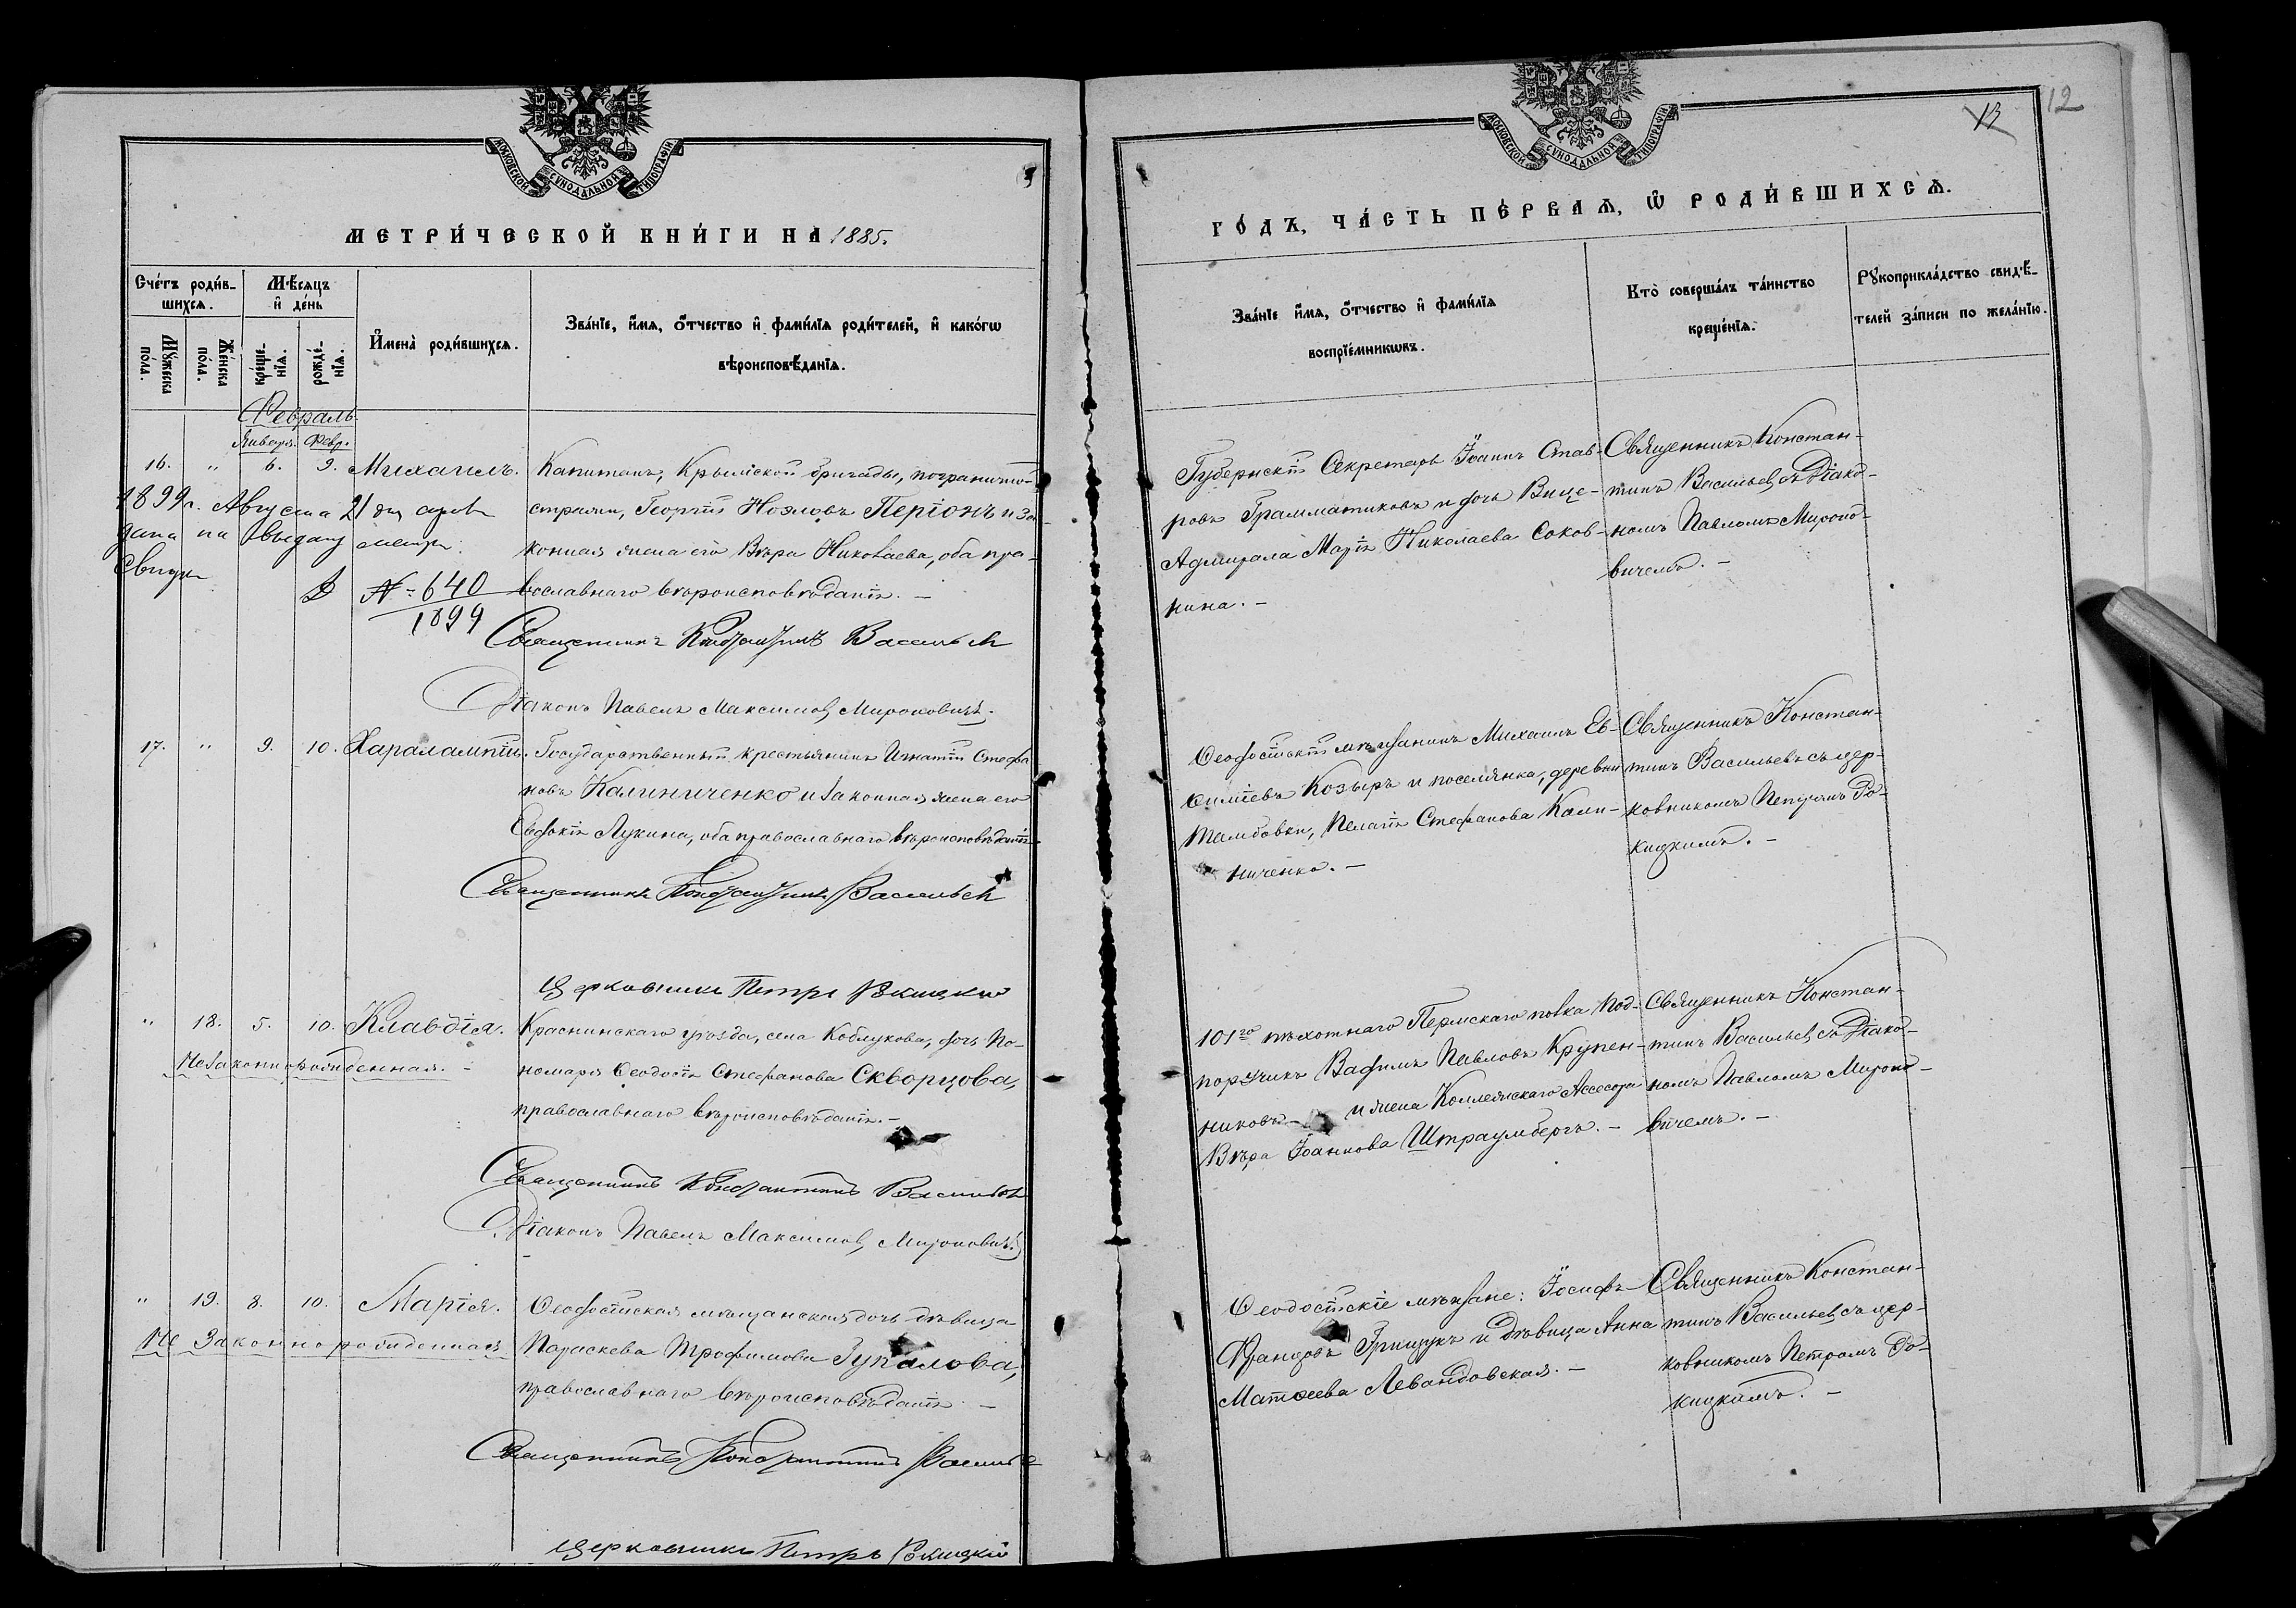 МОСКОВСКОЙ СѴНОДАЛЬНОЙ ТИПОГРАФІИ
МЕТРИ́ЧЕСКОЙ КНИ́ГИ НА 1885.
Сче́тъ роди́в-
шихсѧ.
Мѣ́сѧцъ
и҆ де́нь
Мꙋ́жеска
по́ла.
Же́нска
по́ла.
креще́-
нїѧ.
рожде́-
нїѧ.
И҆мена̀ роди́вшихсѧ.
Зва́нїе, и҆́мѧ, о҆́тчество и҆ фами́лїѧ роди́телей, и҆ како́гѡ
вѣроисповѣ́данїѧ.
Февраль
Января. Февр.
16. " 6. 9. Михаилъ.
Капитанъ, Крымской бригады, пограничной
стражи, Георгій Ноэловъ Перiонъ и за-
конная жена его Вѣра Николаева, оба пра-
вославнаго вѣроисповѣданія. —
1899 г. Августа 21 дня
дана на выдачу метри.
Свид
№ 640
1899
Священникъ Константинъ Васильевъ
Діаконъ Павелъ Максимовъ Мироновичъ.
17. " 9. 10. Харалампій.
Государственный крестьянинъ Игнатій Стефа
новъ Калиниченко и законная жена его
Евдокія Лукина, оба православнаго вѣроисповѣданія.
Священникъ Константинъ Васильевъ
Церковникъ Петръ Рокицкій
" 18. 5. 10. Клавдія.
Незаконнорожденная. —
Краснинскаго уѣзда, села Коблукова, дочь По-
номаря Ѳеодосія Стефанова Скворцова,
православнаго вѣроисповѣданія. —
Священникъ Константинъ Васильевъ
Діаконъ Павелъ Максимовъ Мироновичъ.
" 19. 8. 10. Марія.
Незаконнорожденная
Ѳеодосійская мѣщанская дочь дѣвица
Параскева Трофимова Гупалова,
православнаго вѣроисповѣданія —
Священникъ Константинъ Васильевъ
Церковникъ Петръ Рокицкій
МОСКОВСКОЙ СѴНОДАЛЬНОЙ ТИПОГРАФІИ
13 12
ГО́ДЪ, ЧА́СТЬ ПЕ́РВАѦ, Ѡ҆ РОДИ́ВШИХСѦ.
Зва́нїе и҆́мѧ, о҆́тчество и҆ фами́лїѧ
воспрїе́мникѡвъ.
Кто̀ соверша́лъ та́инство
креще́нїѧ.
Рꙋкоприкла́дство свидѣ́-
телей за́писи по жела́нїю.
Губернскій Секретарь Іоаннъ Став-
ровъ Грамматиковъ и дочь Вице-
Адмирала Марія Николаева Соков-
нина. —
Священникъ Констан-
тинъ Васильевъ съ Діако-
номъ Павломъ Мироно-
вичемъ. —
Ѳеодосійскій мѣщанинъ Михаилъ Ев-
симіевъ Козырь и поселянка, деревни
Тамбовки, Пелагія Стефанова Кали-
ниченко. —
Священникъ Констан-
тинъ Васильевъ съ цер-
ковникомъ Петромъ Ро-
кицкимъ. —
101го пѣхотнаго Пермскаго полка Под-
поручикъ Вадимъ Павловъ Крупен-
никовъ и жена Коллежскаго Ассесора
Вѣра Іоаннова Штраумбергъ. —
Священникъ Констан-
тинъ Васильевъ съ Діако-
номъ Павломъ Мироно-
вичемъ. —
Ѳеодосійскіе мѣщане: Іосифъ
Францовъ Грищукъ и дѣвица Анна
Матѳеева Левандовская. —
Священникъ Констан-
тинъ Васильевъ съ цер-
ковникомъ Петромъ Ро-
кицкимъ. —